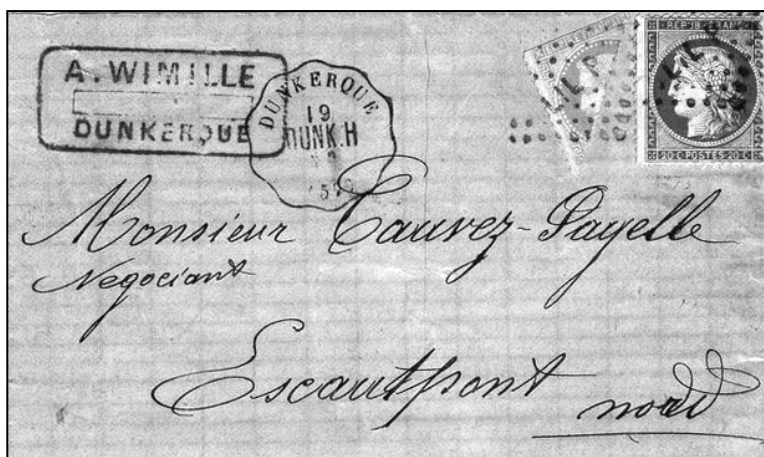 A. WIMILLE
DUNKERQUE
DUNKERQUE
19
DUNK.H
REPUB. FRANC.
20 C POSTES 20 C
Monsieur Cauvez-Payelle
Negociant
Escautpont
nord